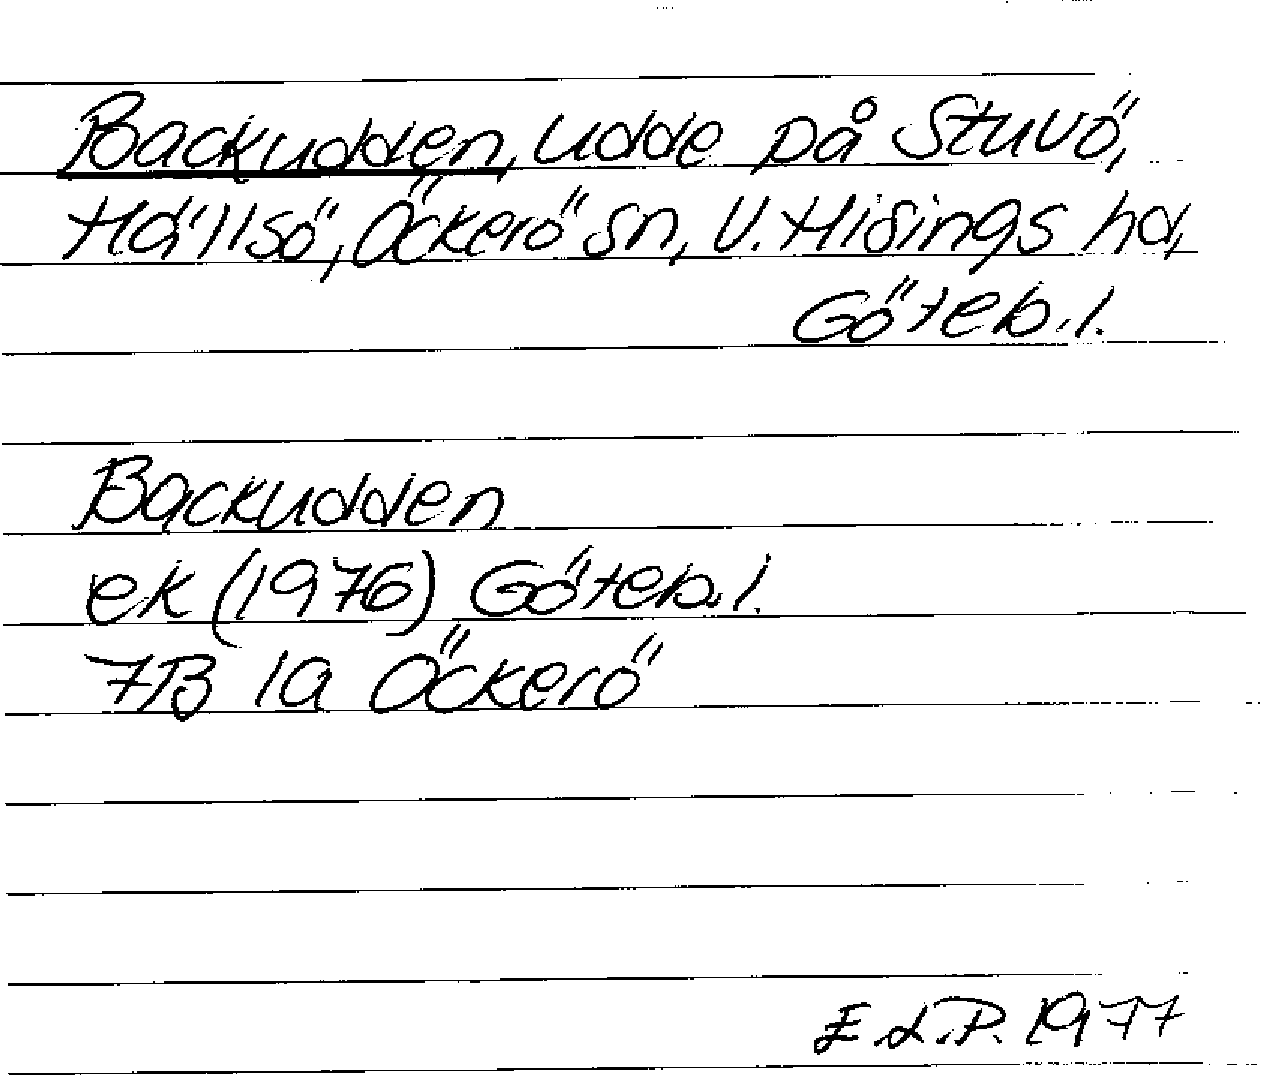 Backudden, udde på Stuvö,
Hällsö, Öckerö sn, V. Hisings hd,
Göteb. l.
Backudden
ek (1976) Göteb. l.
7B 1a Öckerö
E.L.P. 1977